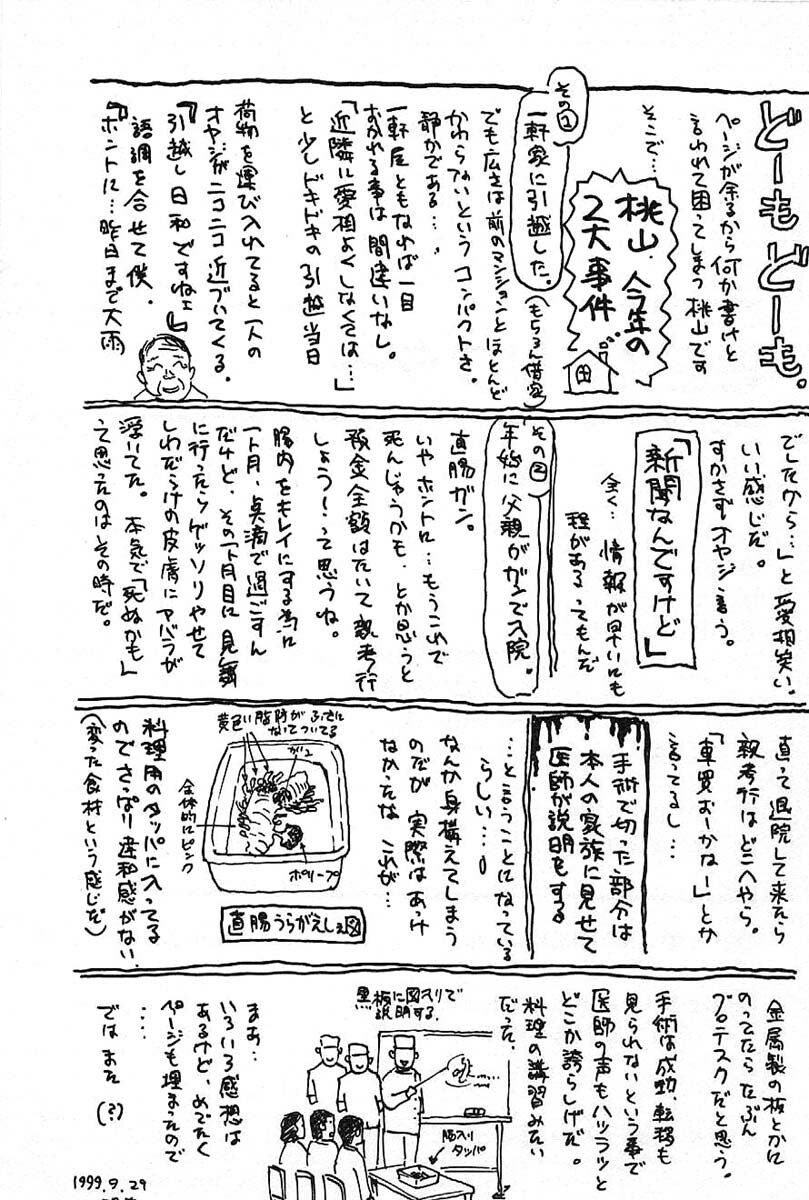 どーもどーも。
ページが余るから何か書けと
言われて困ってしまう桃山です
そこで…
桃山.今年の
2大事件
その1
一軒家に引越した。
(もちろん借家)
でも広さは前のマンションとほとんど
かわらないというコンパクトさ。
静かである…。
一軒屋ともなれば一目
おかれる事は間違いなし。
「近隣に愛想よくしなくては…」
と少しドキドキの引越当日
荷物を運び入れてると一人の
オヤジがニコニコ近づいてくる。
『引越し日和ですねェ』
語調を合せて僕。
『ホントに…昨日まで大雨
でしたから…』と愛想笑い。
いい感じだ。
すかさずオヤジ言う。
「新聞なんですけど」
全く…情報が早いにも
程があるってもんだ
その2
年始に父親がガンで入院。
直腸ガン。
いやホントに…もうこれで
死んじゃうかも、とか思うと
預金全額はたいて親考行
しょう!って思うね。
腸内をキレイにする為に
一ヶ月、点滴で過ごすん
だけど、その一ヶ月目に見舞
に行ったらゲッソリやせて
しわだらけの皮膚にアバラが
浮いてた。本気で「死ぬかも」
って思ったのはその時だ。
直って退院して来たら
親考行はどこへやら。
「車買おーかなー」とか
言ってるし…
手術で切った部分は
本人の家族に見せて
医師が説明をする
…と言うことになっている
らしい…。
なんか身構えてしまう
のだが 実際はあっけ
なかったな これが…
黄色い脂肪がふさふさに
なってついてる
ポリープ
全体的にピンク
直腸うらがえしの図
料理用のタッパに入ってる
のでさっぱり違和感がない
(変った食材という感じだ)
金属製の板とかに
のってたらたぶん
グロテスクだと思う。
手術は成功、転移も
見られないという事で
医師の声もハツラツと
どこか誇らしげだ。
料理の講習みたい
だった。
黒板に図入りで
説明する。
腸入り
タッパ
まぁ…
いろいろ感想は
あるけど、めでたく
ページも埋まったので
…
ではまた (?)
1999.9.29